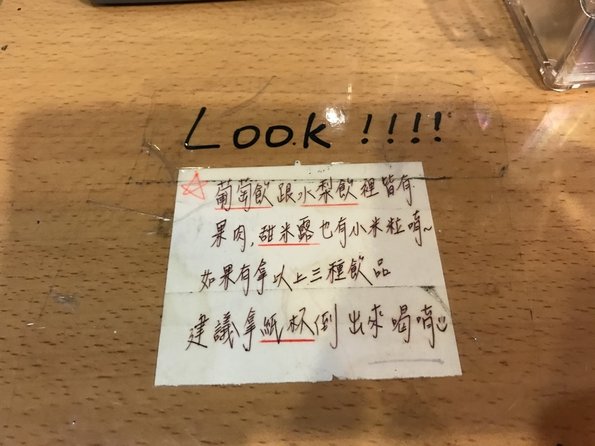 Look !!!!
☆葡萄飲跟水梨飲裡皆有
果肉,甜米露也有小米粒唷~
如果有拿以上三種飲品
建議拿紙杯倒出來喝唷☺